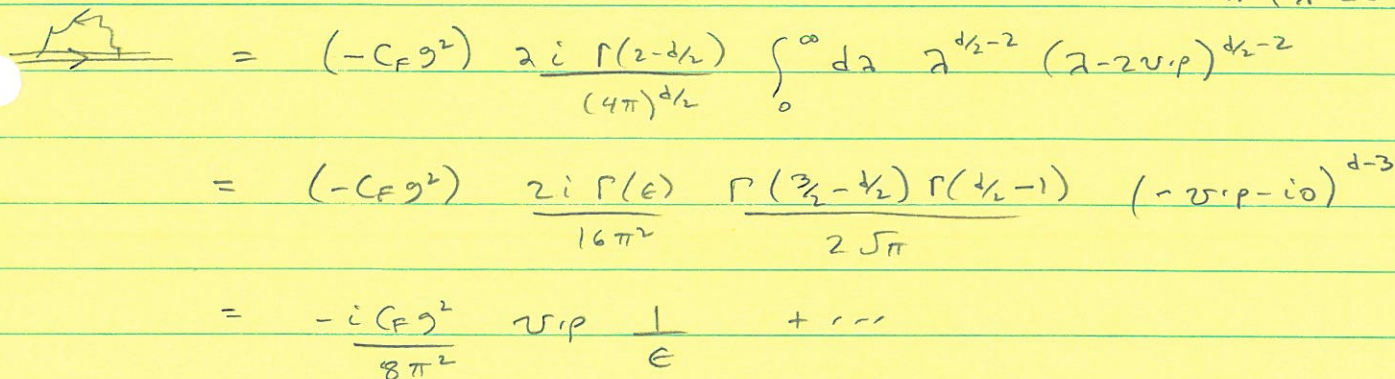 = (-C_F g²) 2i Γ(2-d/2) / (4π)^{d/2} ∫_0^∞ dλ λ^{d/2-2} (λ-2v·p)^{d/2-2}
= (-C_F g²) 2i Γ(ε) / 16π² Γ(3/2-d/2) Γ(d/2-1) / 2√π (-v·p-i0)^{d-3}
= -i C_F g² / 8π² v·p 1/ε + ...